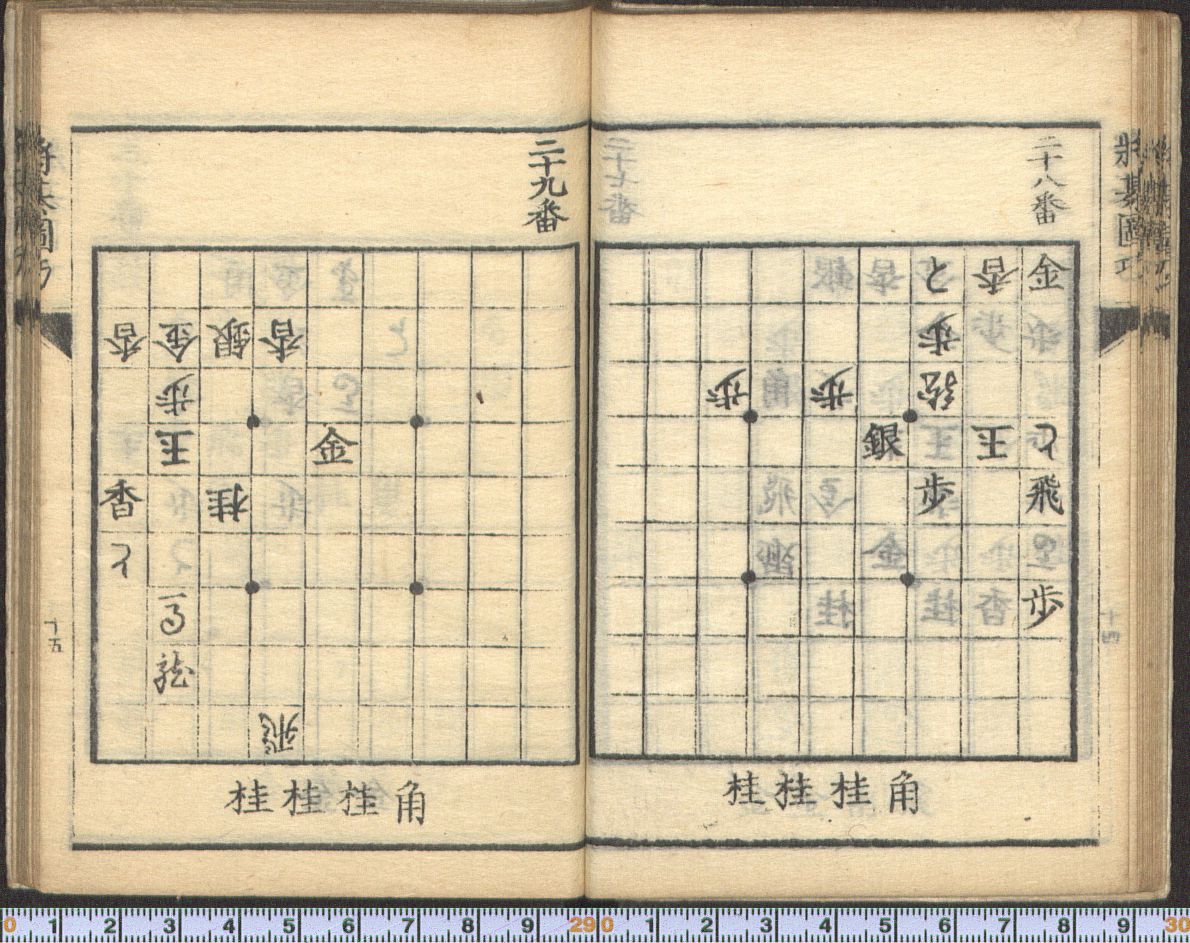 二十八番
金香と
歩
歩歩龍
と玉銀
飛歩
歩
角桂桂桂
十四
二十九番
香銀金香
歩
金玉
桂香
と
馬
龍
飛
角桂桂桂
十五
0 1 2 3 4 5 6 7 8 9 29 0 1 2 3 4 5 6 7 8 9 30